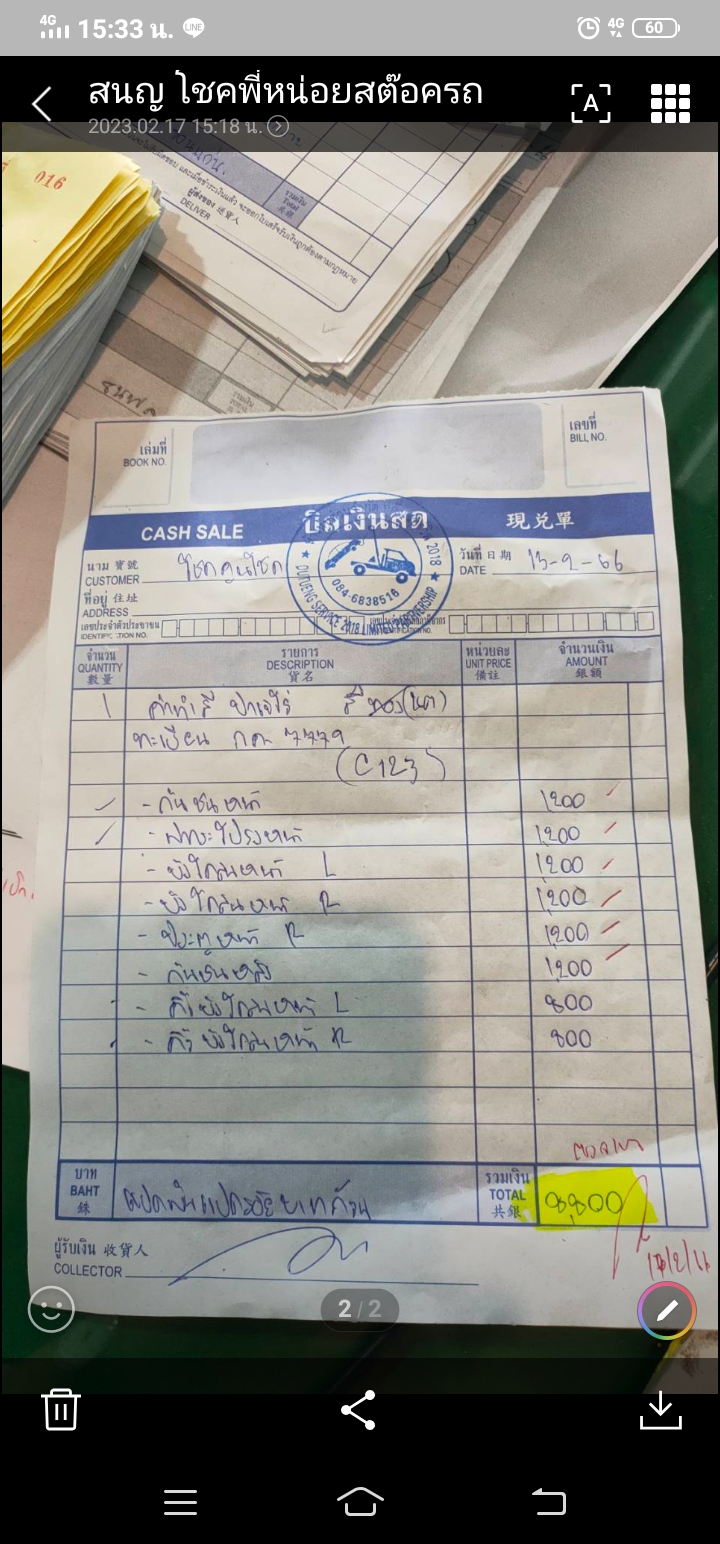 4G 15:33 น. LINE 4G 60
สนญ โชคพี่หน่อยสต๊อครถ
A
2023.02.17 15:18 น.
016
รวมเงิน
Total
共銀
ผู้ส่งของ 送貨人
DELIVER
เล่มที่
BOOK NO.
เลขที่
BILL NO.
CASH SALE บิลเงินสด 現兑單
2018
084-6838516
SERVICE 2018 LIMITED PARTNERSHIP
นาม 寳號
CUSTOMER
วันที่ 日期
DATE 13-2-66
ที่อยู่ 住址
ADDRESS
เลขประจำตัวประชาชน
จำนวน
QUANTITY
數量
รายการ
DESCRIPTION
貨名
หน่วยละ
UNIT PRICE
備註
จำนวนเงิน
AMOUNT
銀額
1 ค่าทำสี ปาเจโร่ สี (เทา)
ทะเบียน กต 7779
(C123)
- กันชนหน้า 1,200
- ฝากระโปรงหน้า 1,200
- บังโคลนหน้า L 1,200
- บังโคลนหน้า R 1,200
- ประตูหน้า R 1,200
- กันชนหลัง 1,200
- คิ้วบังโคลนหน้า L 800
- คิ้วบังโคลนหน้า R 800
บาท
BAHT
銖
แปดพันแปดร้อยบาทถ้วน
รวมเงิน
TOTAL
共銀
8,800
ผู้รับเงิน 收貨人
COLLECTOR
2 / 2